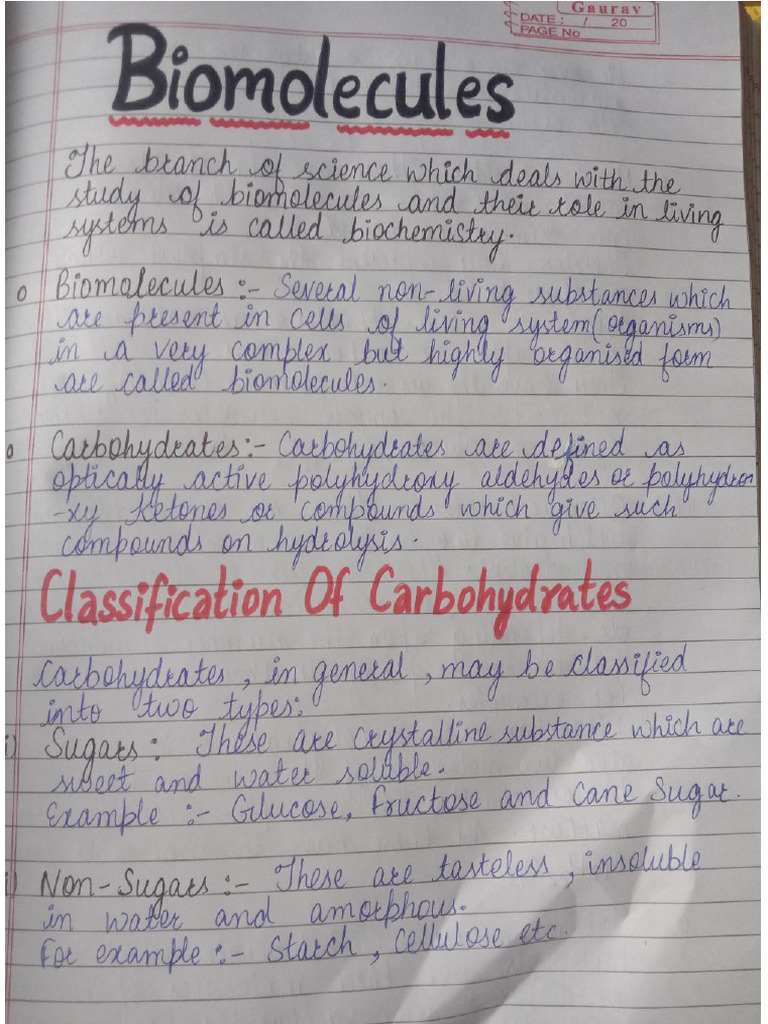 Gaurav
DATE: / 20
PAGE No
Biomolecules
The branch of science which deals with the
study of biomolecules and their role in living
systems is called biochemistry.
o Biomolecules :- Several non-living substances which
are present in cells of living system (organisms)
in a very complex but highly organised form
are called biomolecules.
o Carbohydrates:- Carbohydrates are defined as
optically active polyhydroxy aldehydes or polyhydro
-xy ketones or compounds which give such
compounds on hydrolysis.
Classification Of Carbohydrates
Carbohydrates, in general, may be classified
into two types:
i) Sugars: These are crystalline substance which are
sweet and water soluble.
Example :- Glucose, fructose and cane sugar.
i) Non-Sugars :- These are tasteless, insoluble
in water and amorphous.
For example :- Starch, Cellulose etc.